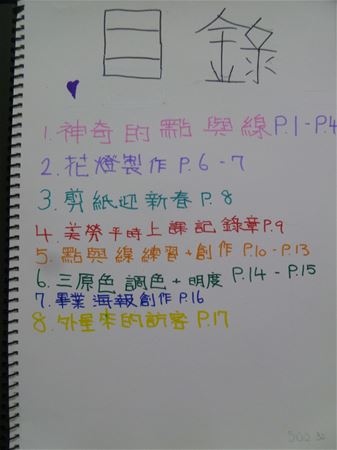 目錄
1. 神奇的點與線 P.1-P.4
2. 花燈製作 P.6-7
3. 剪紙迎新春 P.8
4. 美勞平時上課記錄章 P.9
5. 點與線練習+創作 P.10-P.13
6. 三原色調色+明度 P.14-P.15
7. 畢業海報創作 P.16
8. 外星來的訪客 P.17